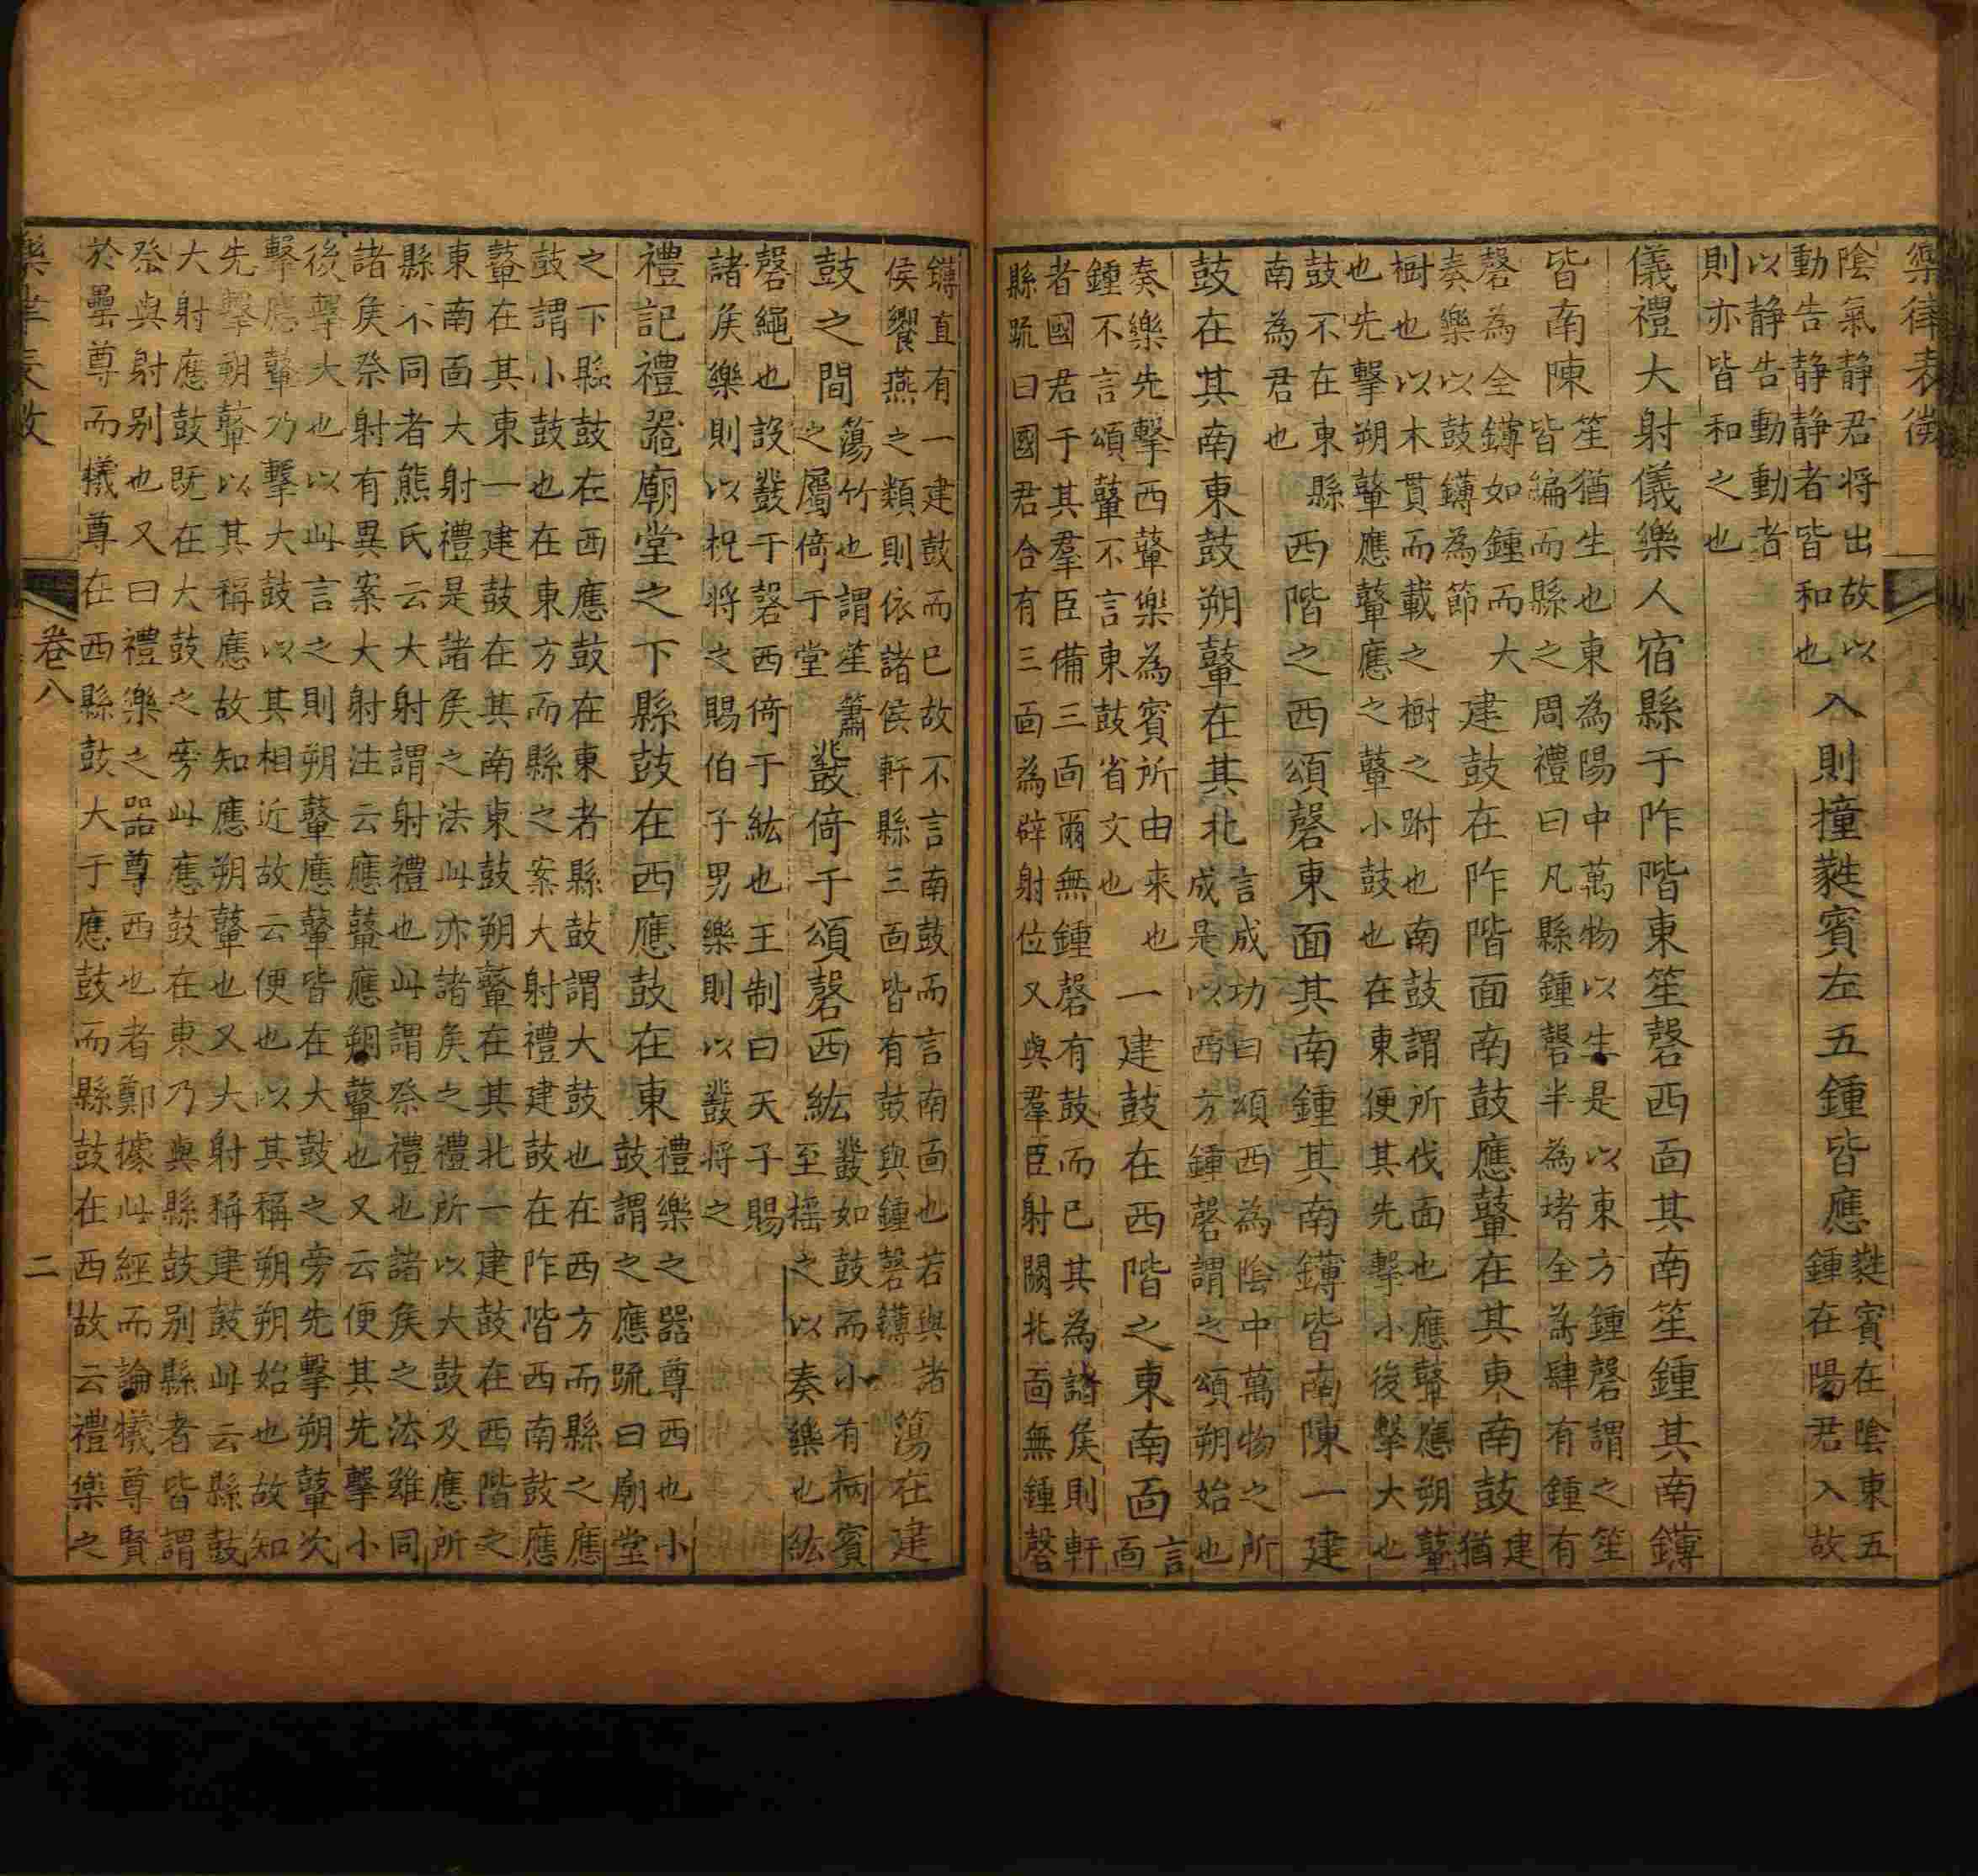 樂律表微
陰氣静君将出故以
動告静静者皆和也
入則撞蕤賓左五鍾皆應
蕤賓在陰東五
鍾在陽君入故
以静告動動者
則亦皆和之也
儀禮大射儀樂人宿縣于阼階東笙磬西面其南笙鍾其南鑮
皆南陳
笙猶生也東為陽中萬物以生是以東方鍾磬謂之笙
皆編而縣之周禮曰凡縣鍾磬半為堵全為肆有鍾有
磬為全鑮如鍾而大
奏樂以鼓鑮為節
建鼓在阼階面南鼓應鼙在其東南鼓
建
猶
樹也以木貫而載之樹之跗也南鼓謂所伐面也應鼙應朔鼙
也先擊朔鼙應鼙應之鼙小鼓也在東便其先擊小後擊大也
鼓不在東縣
南為君也
西階之西頌磬東面其南鍾其南鑮皆南陳一建
鼓在其南東鼓朔鼙在其北
言成功曰頌西為陰中萬物之所
成是以西方鍾磬謂之頌朔始也
奏樂先擊西鼙樂為賓所由来也
鍾不言頌鼙不言東鼓省文也
一建鼓在西階之東南面
言
面
者國君于其羣臣備三面爾無鍾磬有鼓而已其為諸矦則軒
縣疏曰國君合有三面為辟射位又與羣臣射闕北面無鍾磬
鑮直有一建鼓而已故不言南鼓而言南面也若與諸
侯饗燕之類則依諸侯軒縣三面皆有鼓與鍾磬鑮
簜在建
鼓之間
簜竹也謂笙簫
之屬倚于堂
鼗倚于頌磬西紘
鼗如鼓而小有柄賓
至搖之以奏樂也紘
磬繩也設鼗于磬西倚于紘也王制曰天子賜
諸矦樂則以柷将之賜伯子男樂則以鼗将之
禮記禮器廟堂之下縣鼓在西應鼓在東
禮樂之器尊西也小
鼓謂之應疏曰廟堂
之下縣鼓在西應鼓在東者縣鼓謂大鼓也在西方而縣之應
鼓謂小鼓也在東方而縣之案大射禮建鼓在阼階西南鼓應
鼙在其東一建鼓在其南東鼓朔鼙在其北一建鼓在西階之
東南面大射禮是諸矦之法此亦諸矦之禮所以大鼓及應所
縣不同者熊氏云大射謂射禮也此謂祭禮也諸矦之法雖同
諸矦祭射有異案大射注云應鼙應朔鼙也又云便其先擊小
後擊大也以此言之則朔鼙應鼙皆在大鼓之旁先擊朔鼙次
擊應鼙乃擊大鼓以其相近故云便也以其稱朔朔始也故知
先擊朔鼙以其稱應故知應朔鼙也又大射稱建鼓此云縣鼓
大射應鼓既在大鼓之旁此應鼓在東乃與縣鼓别縣者皆謂
祭與射别也又曰禮樂之器尊西也者鄭據此經而論犧尊賢
於罍尊而犧尊在西縣鼓大于應鼓而縣鼓在西故云禮樂之
卷八
二